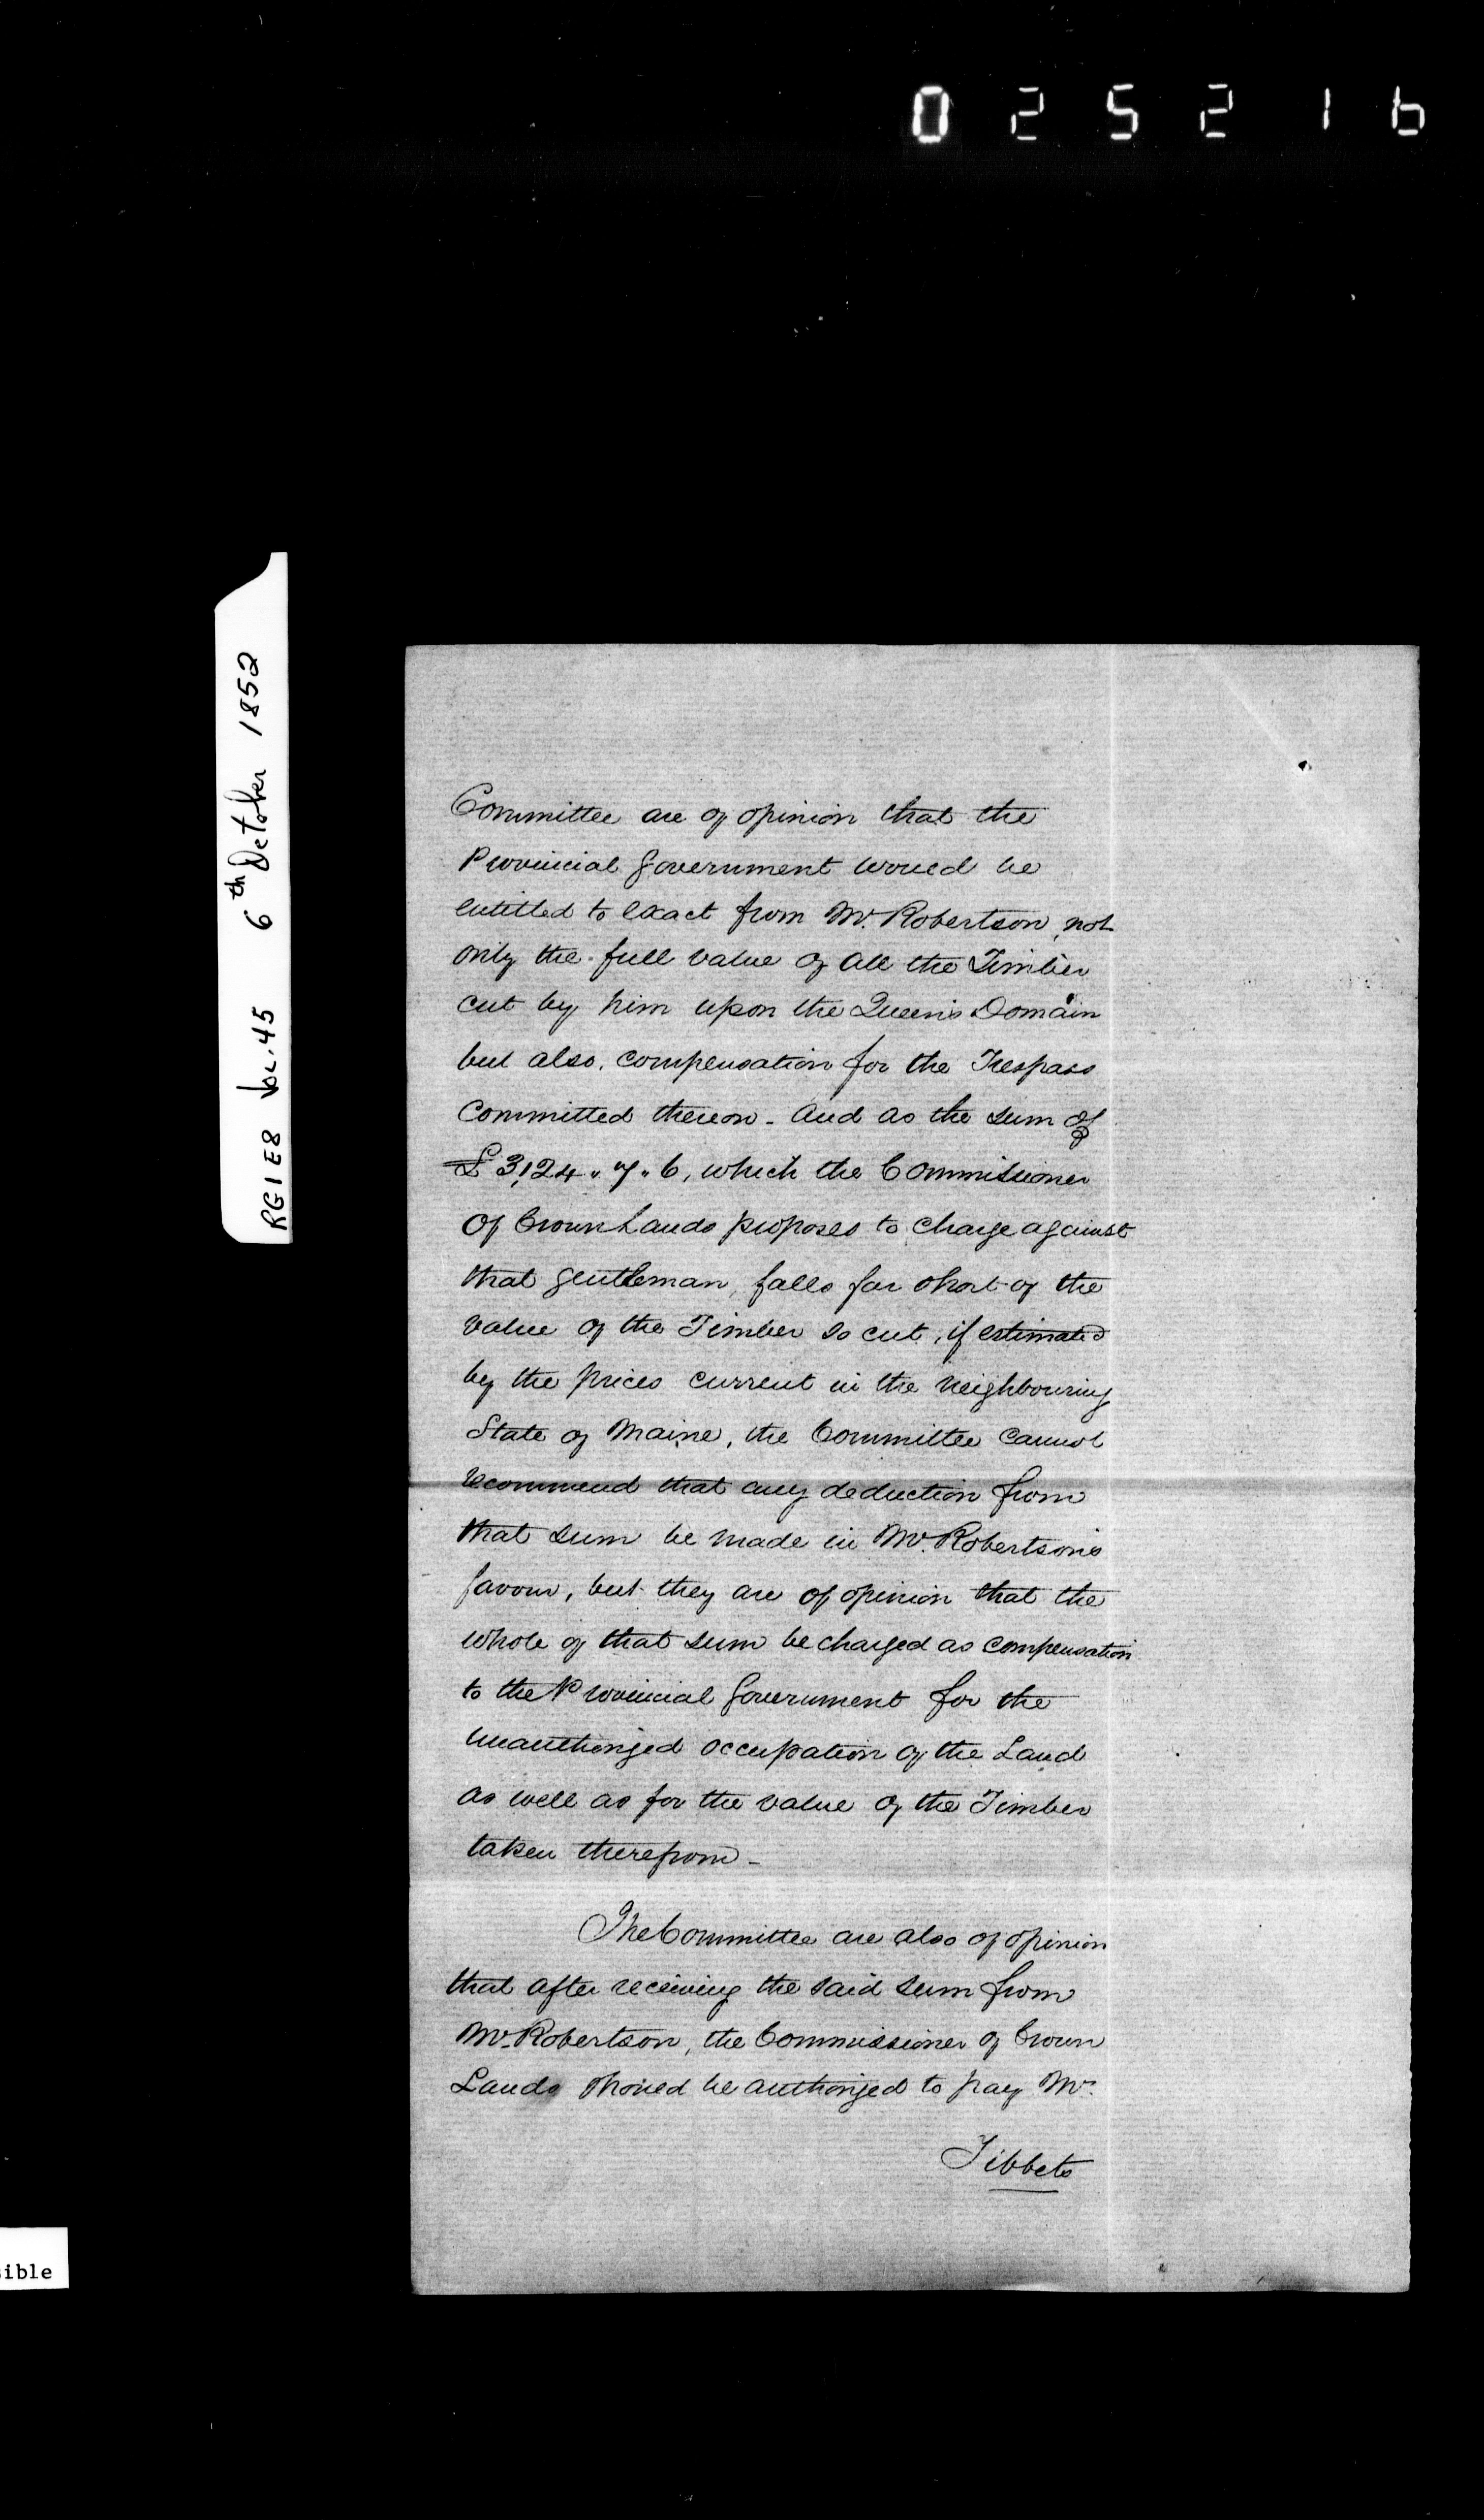 025216
RG1E8 Vol.45 6th October 1852
Committee are of opinion that the
Provincial Government would be
entitled to exact from Mr. Robertson, not
only the full value of all the Timber
cut by him upon the Queen's Domain
but also, compensation for the Trespass
Committed thereon - And as the sum of
£3,124 " 7 " 6, which the Commissioner
Of Crown Lands proposes to charge against
that gentleman, falls far short of the
value of the Timber so cut, if estimated
by the prices current in the neighbouring
State of Maine, the Committee Cannot
recommend that any deduction from
that sum be made in Mr. Robertson's
favour, but they are of opinion that the
whole of that sum be charged as compensation
to the Provincial Government for the
unauthorized occupation of the Land
as well as for the value of the Timber
taken therefrom -
The Committee are also of opinion
that after receiving the said sum from
Mr. Robertson, the Commissioner of Crown
Lands should be authorized to pay Mr.
Tibbets
ible